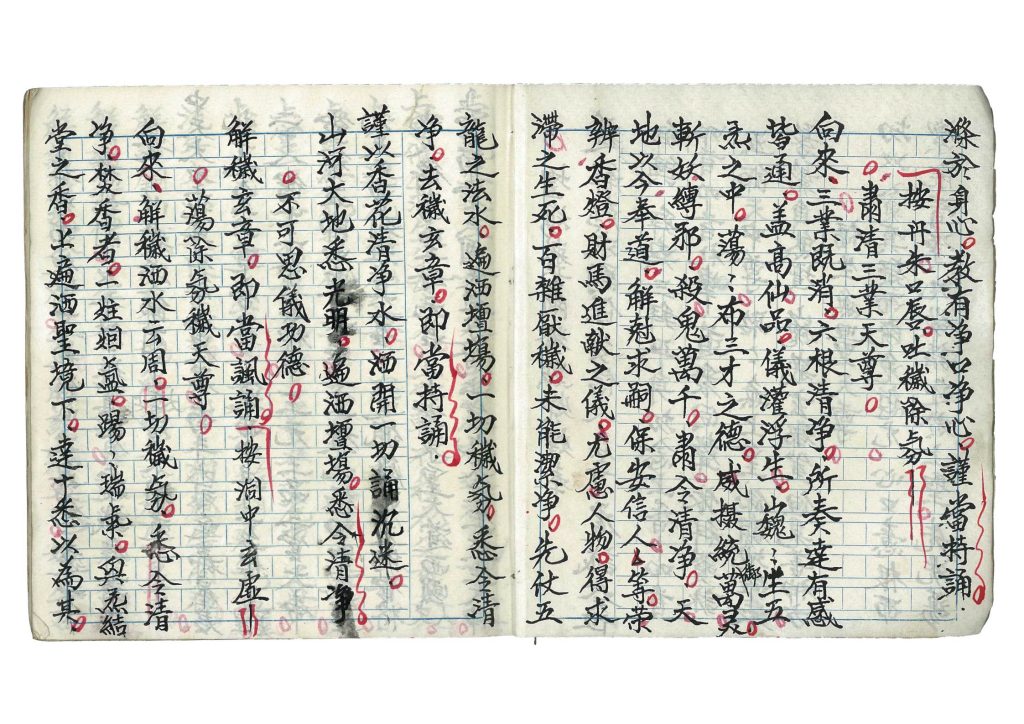 滌於身心。教有净口净心。謹當持誦.
按丹朱口唇。吐穢除氛
肅清三業天尊。
向來、三業既消。六根清净。所奏達有感
皆通。盖高仙品。儀灌浮生。巍〻坐五
炁之中。蕩〻布三才之德。威摄統御萬灵。
斬妖縛邪。殺鬼萬千。肅令清净。天
地从今奉道。解愆求嗣。保安信人厶等。荣
辨香燈。財馬進献之儀。尤慮人物。得求
滯之生死。百雜厭穢。未能潔净。先仗五
龍之法水。遍洒壇場。一切穢氛。悉令清
净。去穢玄章。即當持誦.
謹以香花清净水。洒開一切誦沉迷。
山河大地悉光明。遍洒壇場悉令清净。
不可思儀功德。
解穢玄章。即當諷誦。按洞中玄虛
蕩除氛穢天尊
向來、解穢洒水云周。一切穢氛。悉令清
净。焚香者。一炷烟盖。賜〻瑞氣。與炁結
堂之香。上遍洒聖境下。達十悉。以為其。